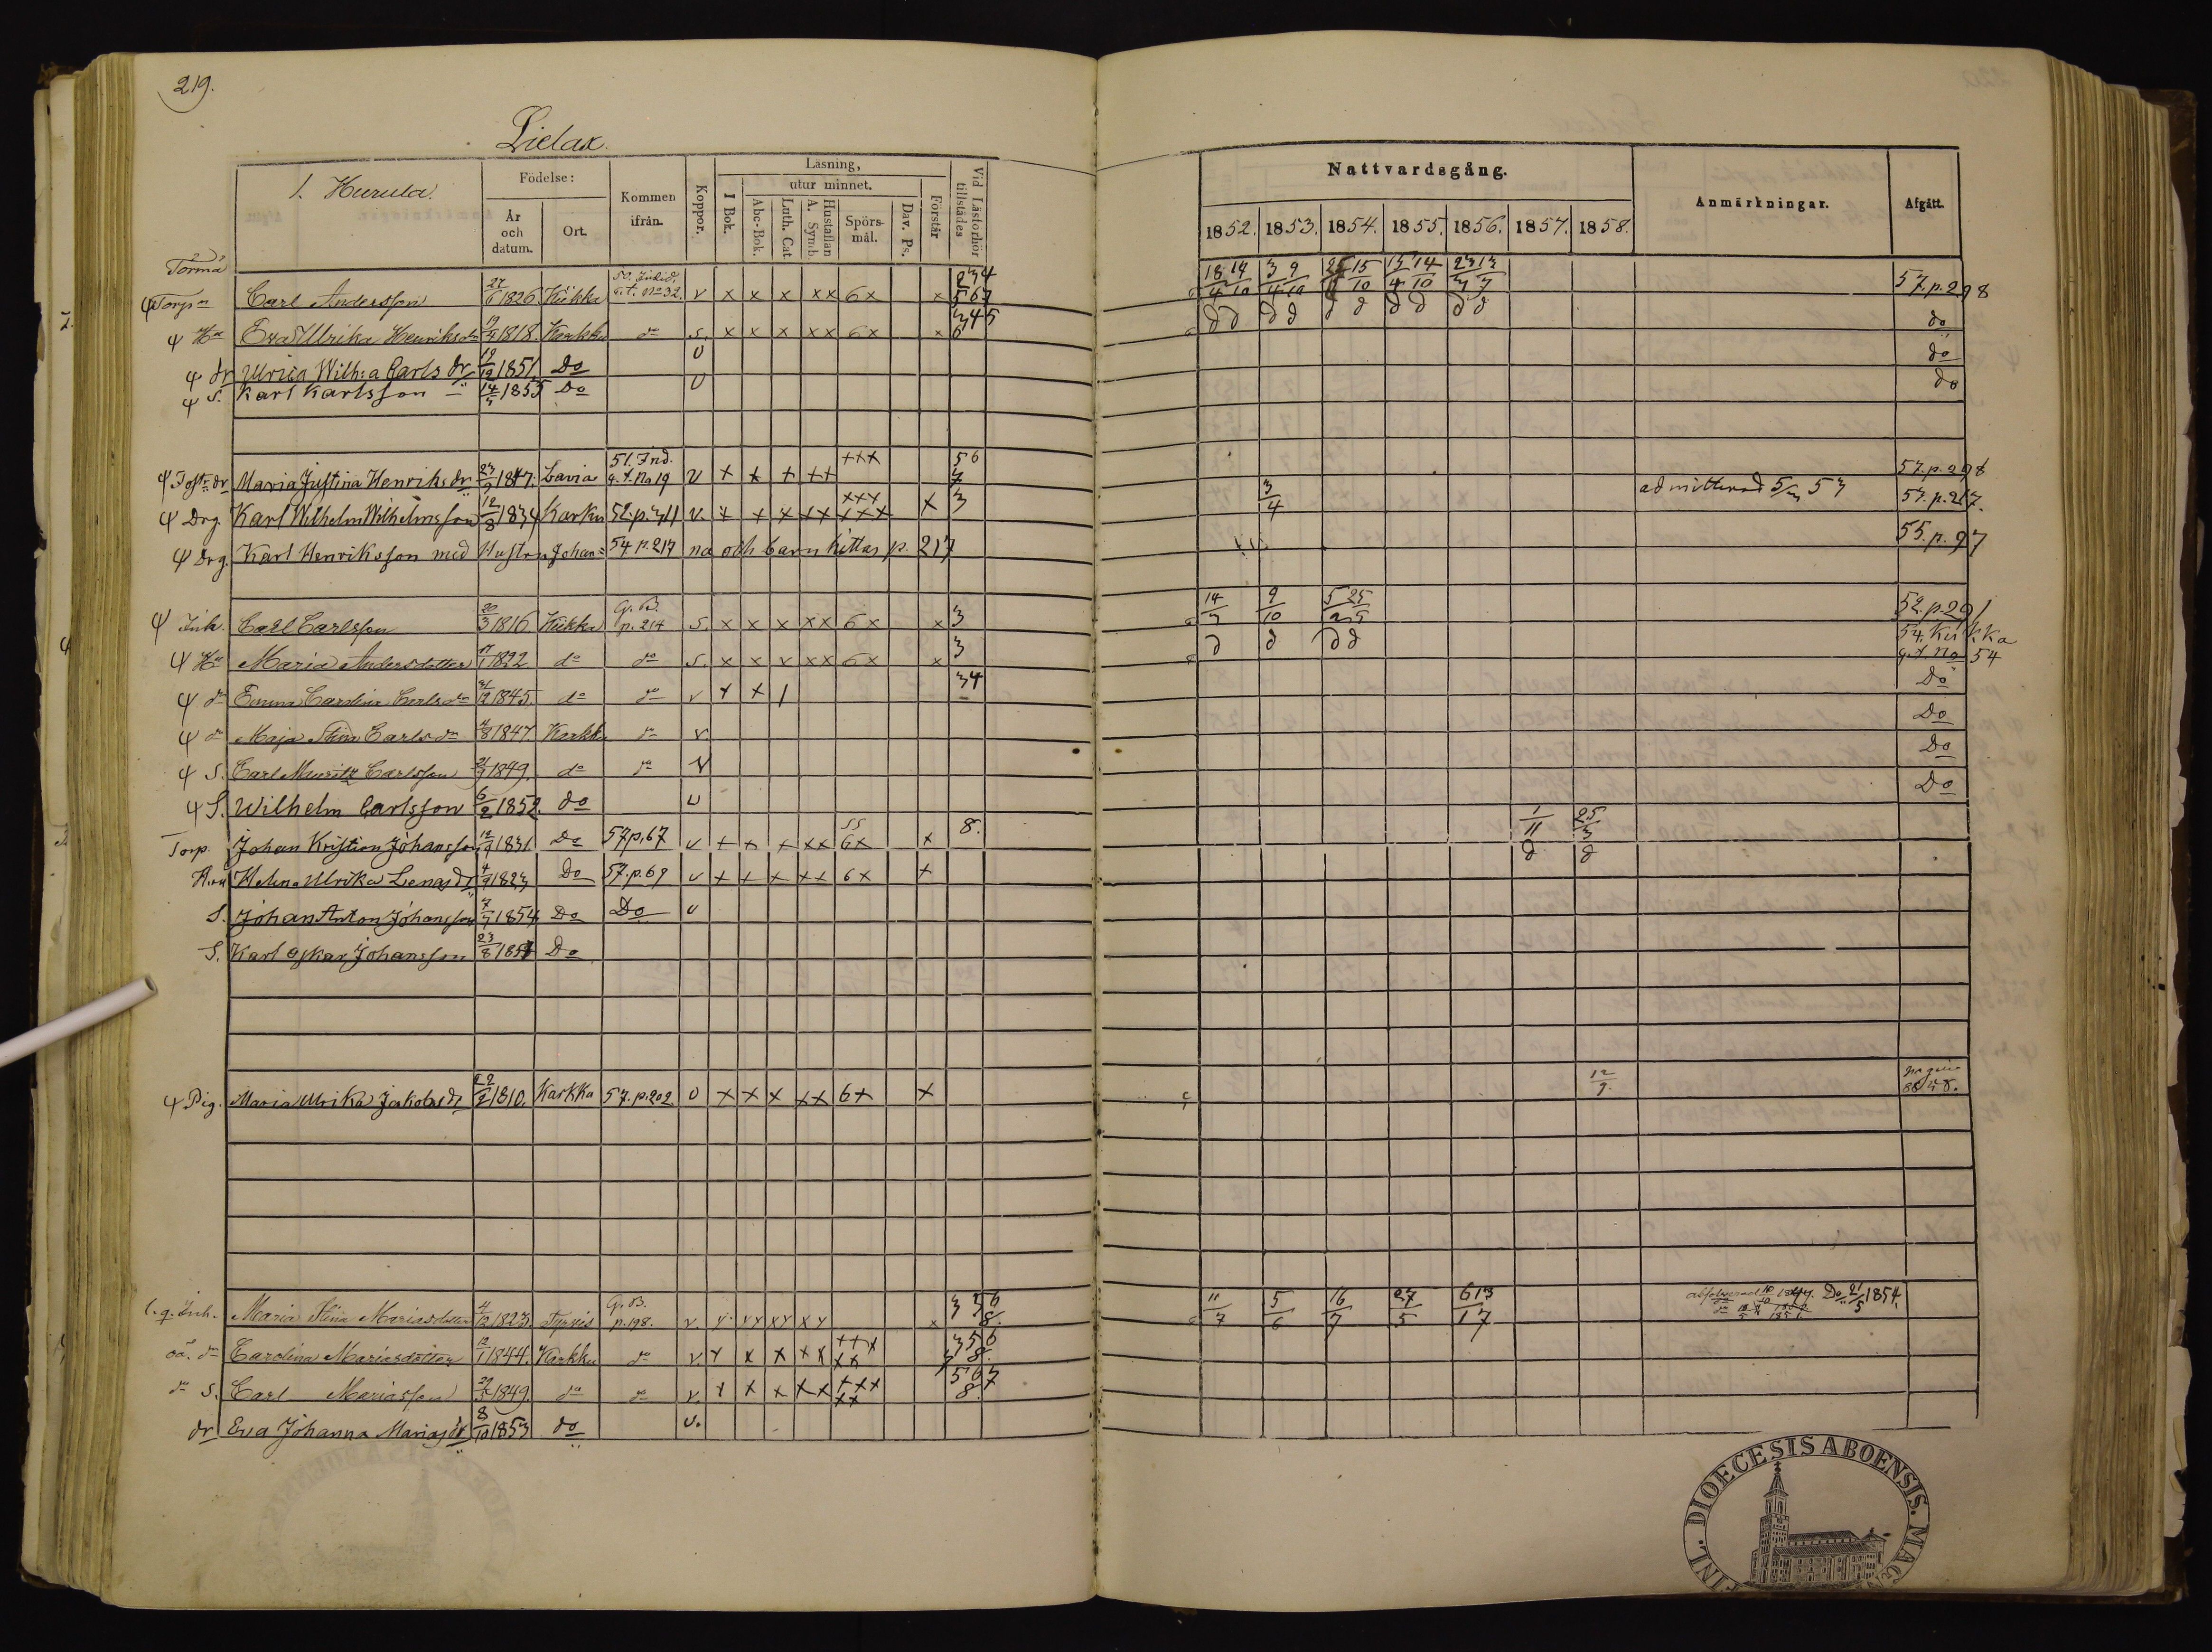 219.
Lielax.
1. Hurula.
Födelse:
År och datum.
Ort.
Kommen ifrån.
Koppor.
Läsning,
I Bok.
utur minnet.
Abc-Bok.
Luth. Cat
Hustaflan A. Symb.
Spörs-mål.
Dav. Ps.
Förstår
Vid Läsförhör tillstädes
Nattvardsgång.
1852. 1853. 1854. 1855. 1856. 1857. 1858.
Anmärkningar.
Afgått.
Törmä
Torp. Carl Andersson 27/6 1826 Kiikka v x x x xx 6x x 234 567 57. p. 298
Hu Eva Ulrika Henriksdr 19/4 1818. Karkku do s. x x x xx 6x x 345 6 do
dr Ulrica Wilh:a Carls dr 19/12 1851. Do v do
S. Karl Karlsson 14/3 1855 Do v do
Fostr. dr Maria Justina Henriks dr 1847. Lavia 51. Ind. a. t. No 19 v x x x xx xxx 56 7 57. p. 298
Drg. Karl Wilhelm Wilhelmsson 12/8 1834 Karku 52. p. 311 v. x x x xx xxx xxx x 3 3/4 admitterad 5/3 53 57. p. 217.
Drg. Karl Henriksson med Hustru Johan= 54 p. 217 na och barn hittas p. 217 55. p. 97
Inh. Carl Carlsson 20/3 1816 Kiikka G. B. p. 214 S. x x x xx 6x x 3 52. p. 291
Hu Maria Andersdotter 17/1 1822 do do S. x x x xx 6x x 3 54. Kiikka a. t. No 54
dr Emma Carolina Carlsdr 31/12 1845. do do v x x / 34 Do
dr Maja Stina Carlsdr 4/8 1847. Karkku do v. Do
S. Carl Mauritz Carlsson 1849 do do v Do
S. Wilhelm Carlsson 6/2 1852. do v Do
Torp. Johan Kristian Johansson 1831 Do 57 p. 67 v x x x xx 6x x 8. 1/11 25/3
Hu Helena Ulrika Lenasdr 4/9 1823 Do 57. p. 69 v x x x xx 6x x
S. Johan Anton Johansson 1854 Do Do v
S. Karl Oskar Johansson 23/8 1857 Do
Pig. Maria Ulrika Jakobsdr 22/2 1810. Karkka 57. p. 202 v x x x xx 6x x 12/9.
Inh. Maria Stina Mariasdotter 4/12 1823. Tyrvis G. B. p. 198. v. x xx xx xx x 356 8. 11/7 5/6 16/7 27/5 Do 21/5 1854.
oä. dr Carolina Mariasdotter 12/1 1844. Karkku do v. x x x xx xxx xx 356 8.
do S. Carl Mariasson 1849. do do v. x x x xx xxx xx 567 8.
dr Eva Johanna Mariasdr 8/10 1853 do v.
FINL. DIOECESIS ABOENSIS. MAGN.